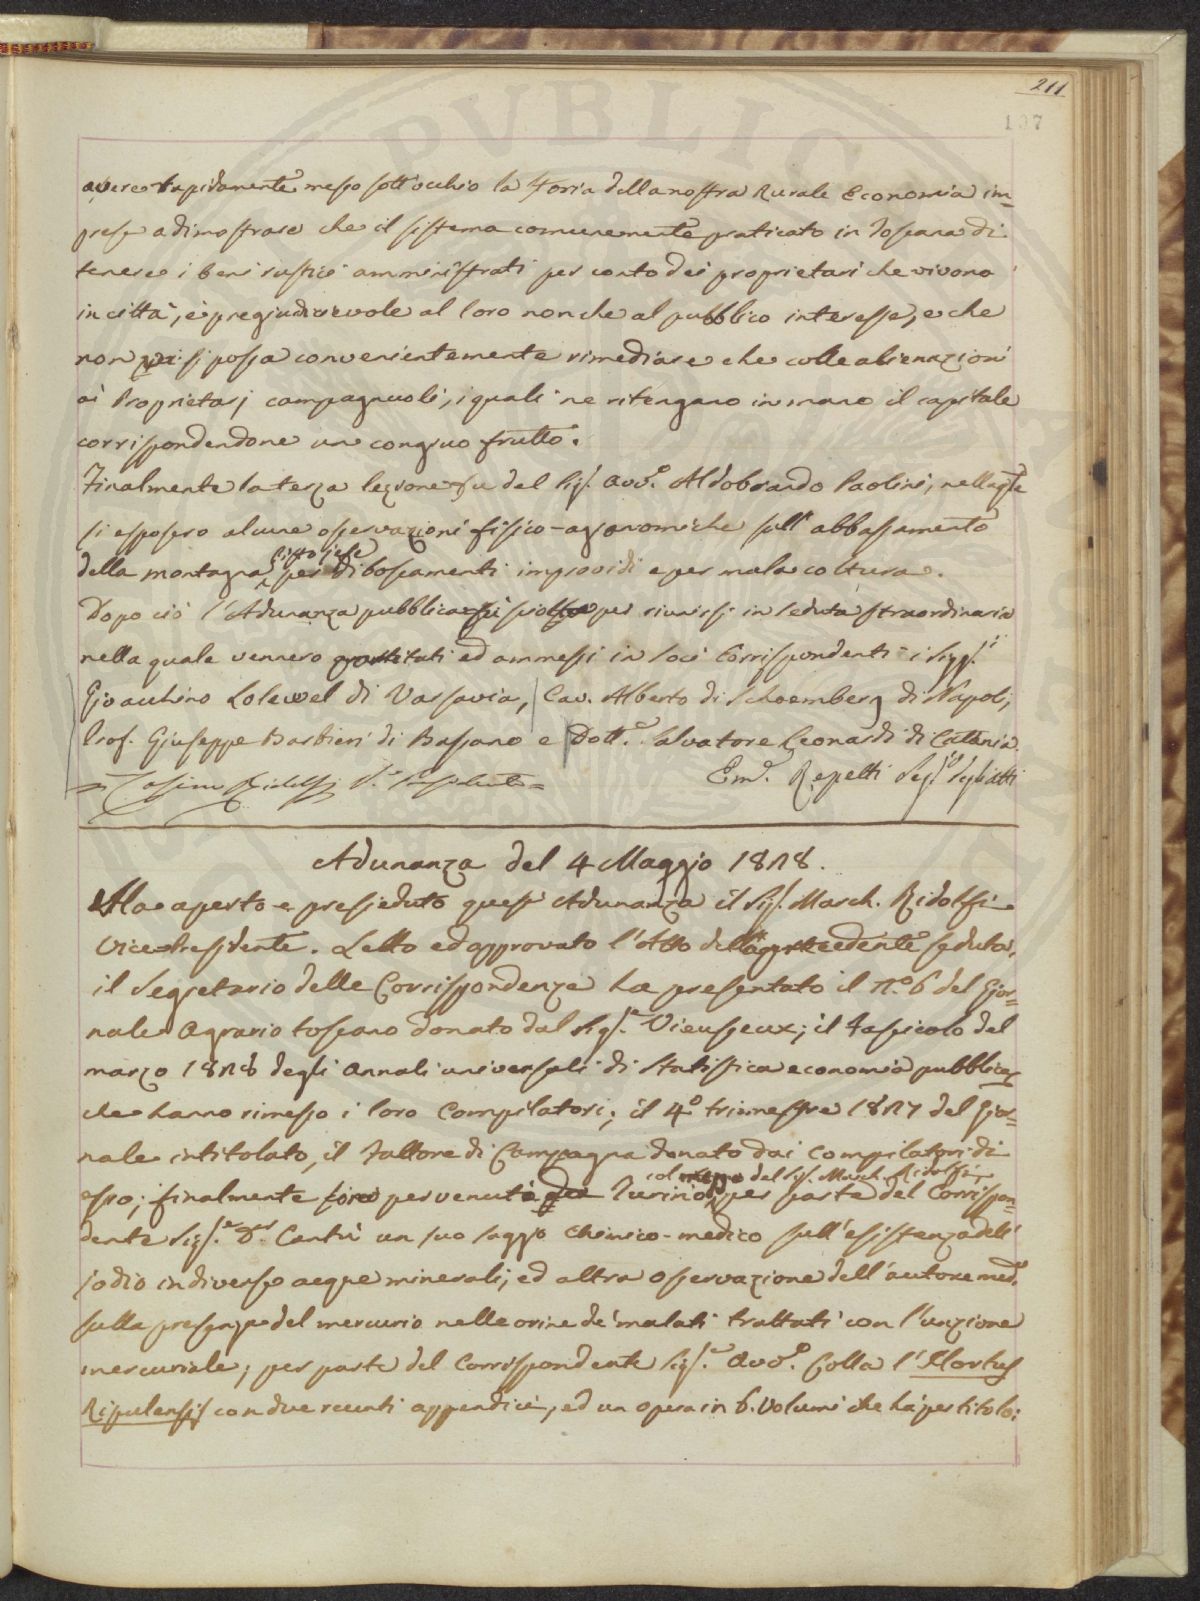 211
107
avere rapidamente messo sott'occhio la Storia della nostra Rurale Economia im=
prese a dimostrare che il sistema comunemente praticato in Toscana di
tenere i beni rustici amministrati per conto dei proprietari che vivono
in città, è pregiudicievole al loro nonchè al pubblico interesse, e che
non vi si possa convenientemente rimediare che colle alienazioni
ai Proprietarj campagnuoli, i quali ne ritengano in mano il capitale
corrispondendone un congruo frutto.
Finalmente la terza lezione fu del Sig. Avv.º Aldobrando Paolini, nella qle
si esposero alcune osservazioni fisico-agronomiche sull'abbassamento
della montagna Pistojese per diboscamenti improvidi e per mala coltura.
Dopo ciò l'Adunanza pubblica si sciolse per riunirsi in Seduta straordinaria
nella quale vennero partitati ed ammessi in Socj Corrispondenti i Sigg.ri
Gioacchino Lolewel di Varsavia, Cav. Alberto di Schoemberg di Napoli,
Prof. Giuseppe Barbieri di Bassano e Dott.e Salvatore Leonardi di Catania.
= Cosimo Ridolfi V.e Presidente =
Em.e Repetti Seg.rio degli Atti
Adunanza del 4 Maggio 1828.
Ha aperto e presieduto quest'Adunanza il Sig. March. Ridolfi
Vice-Presidente. Letto ed approvato l'Atto dell'antecedente seduta,
il Segretario delle Corrispondenze ha presentato il n.º 6 del Gior=
nale Agrario toscano donato dal Sig.e Vieusseux; il Fascicolo del
marzo 1828 degli Annali universali di Statistica economia pubblica &
che hanno rimesso i loro Compilatori; il 4.º trimestre 1827 del Gior=
nale intitolato, il Fattore di Campagna donato dai Compilatori di
esso; finalmente sono pervenute da Turino, col mezzo del Sig. March. Ridolfi, per parte del Corrispon=
dente Sig.e D.r Cantù un suo saggio chimico-medico sull'esistenza dell'
iodio in diverse acque minerali; ed altra osservazione dell'autore med.º
sulla presenza del mercurio nelle orine de' malati trattati con l'unzione
mercuriale; per parte del Corrispondente Sig.e Avv.º Colla l'Hortus
Ripulensis con due recenti appendici, ed un opera in 6. Volumi che ha per titolo: